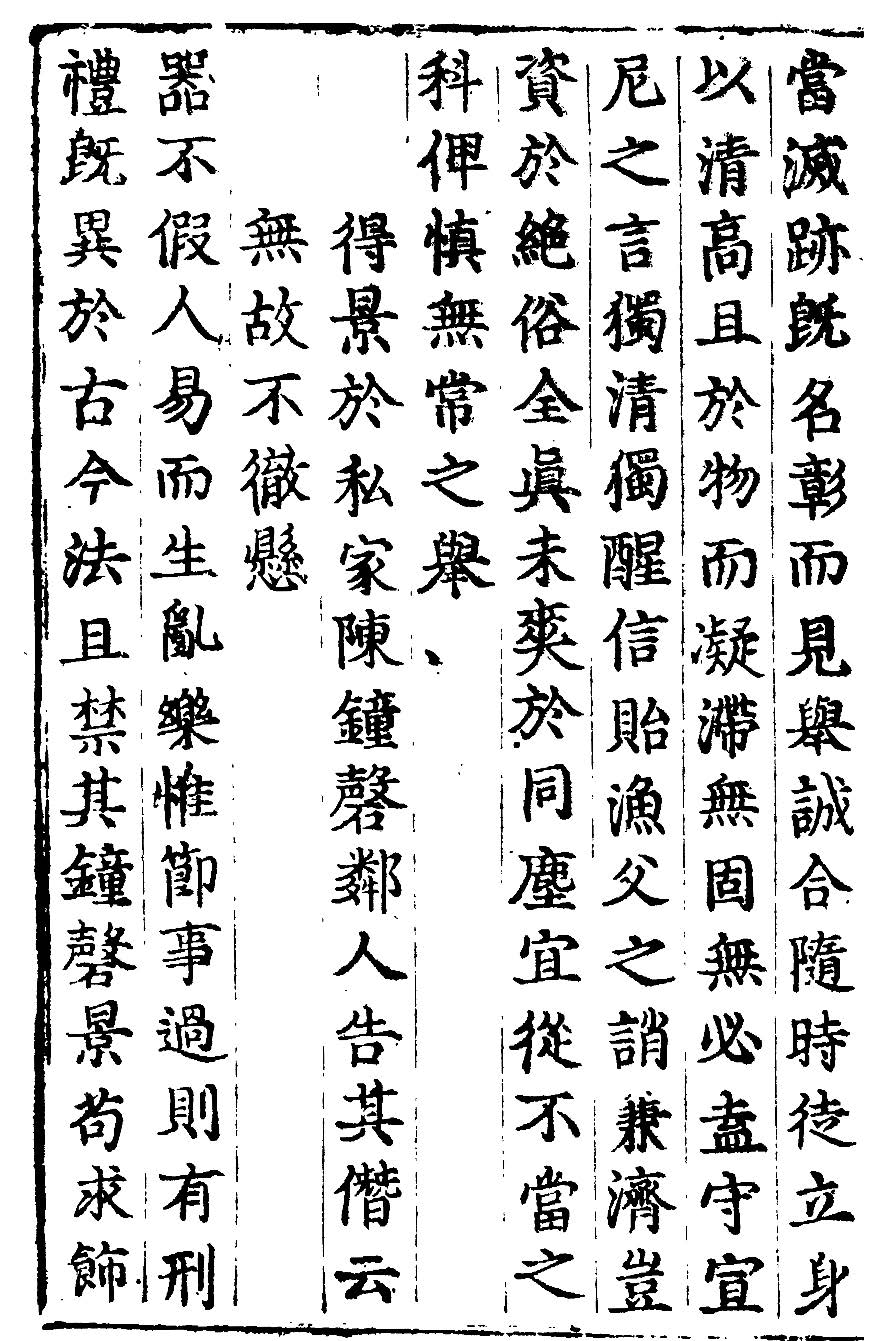 當滅跡旣名彰而見舉誠合隨時徒立身
以清高且於物而凝滯無固無必盍守宣
尼之言獨清獨醒信貽漁父之誚兼濟豈
資於絕俗全眞未爽於同塵宜從不當之
科俾慎無常之舉、
得景於私家陳鐘磬鄰人告其僭云
無故不徹懸
器不假人易而生亂樂惟節事過則有刑
禮旣異於古今法且禁其鐘磬景苟求飾